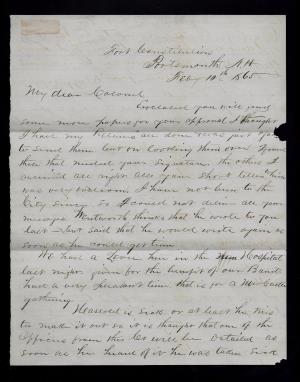 Fort Constitution
Portsmouth N.H
Feby 10th 1865
My dear Colonel
Enclosed you will find
some more papers for your approval I thought
I had my Returns all done were just
to send them but on looking them over found
that needed your signature. the others I
all right also your short letter
was very welcome I have not been to the
City since so I could not deliver all your
messages Wentworth thinks that he wrote to you
last but said that he would write again as
soon as he could get time
We had a in the new Hospital
last night given for the benefit of our Band
had a very pleasant time that is for a
gathering
is sick or at least he tries
to make it out so it is thought that one of the
officers from this Co will be Detailed as
soon as he heard of it he was taken sick